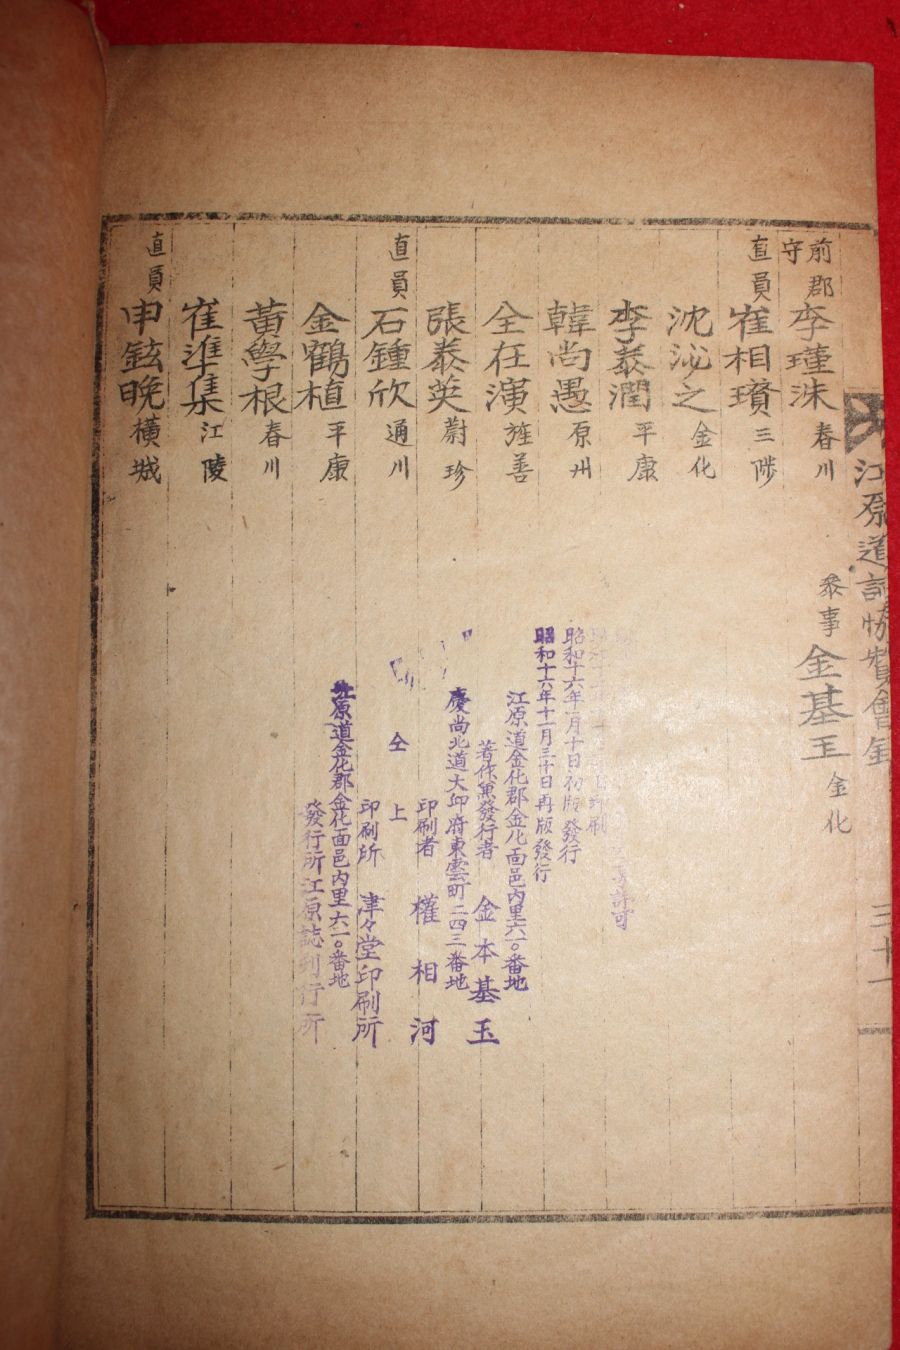 江原道誌
三十一
前郡守 李瑾洙 春川
參事 金基玉 金化
直員 崔相瓚 三陟
沈泌之 金化
李泰潤 平康
韓尚愚 原州
全在演 旌善
張泰英 蔚珍
直員 石鍾欣 通川
金鶴植 平康
黃學根 春川
崔準集 江陵
直員 申鉉晚 橫城
許可
印刷
昭和十六年一月十日初版發行
昭和十六年十一月三十日再版發行
江原道金化郡金化面邑內里六一〇番地
著作兼發行者 金本基玉
慶尚北道大邱府東雲町二四三番地
印刷者 權相河
仝上
印刷所 津々堂印刷所
江原道金化郡金化面邑內里六一〇番地
發行所江原誌刊行所